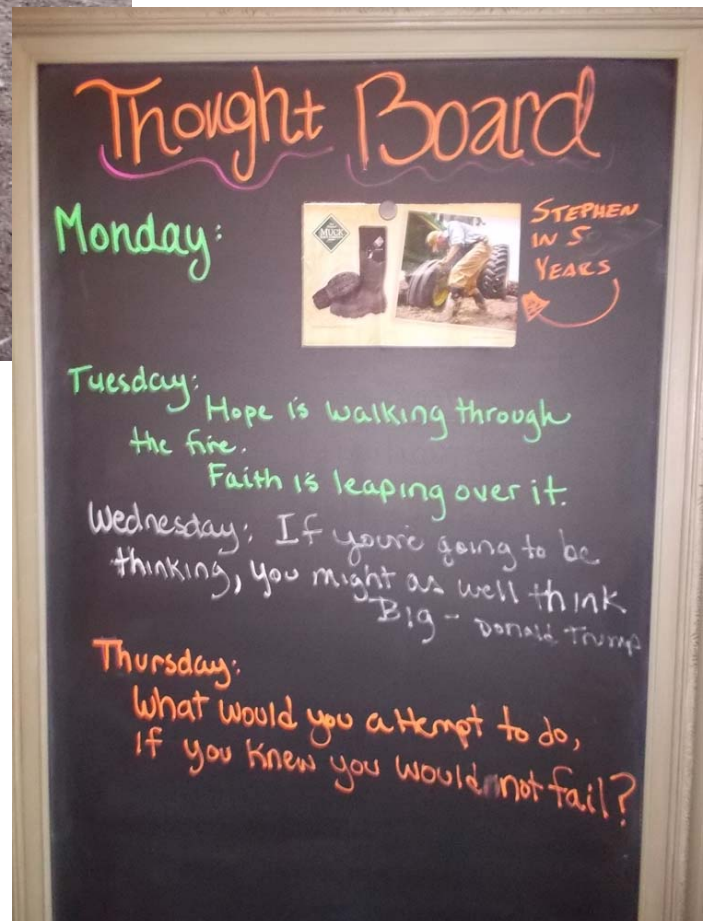 Thought Board
Monday:
MUCK
STEPHEN
IN 5
YEARS
Tuesday:
Hope is walking through
the fire.
Faith is leaping over it.
Wednesday: If you're going to be
thinking, you might as well think
Big - Donald Trump
Thursday:
What would you attempt to do,
If you knew you would not fail?